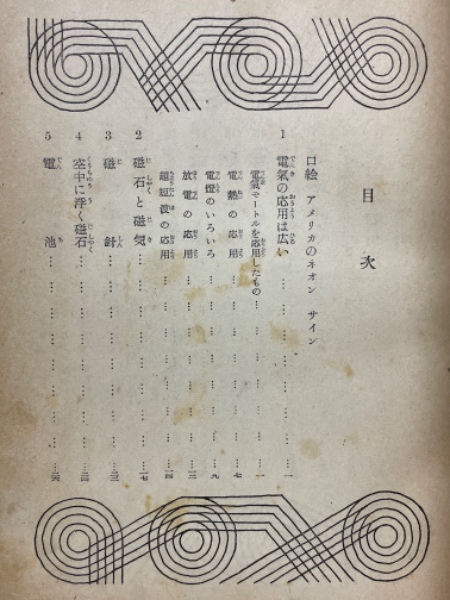 目次
口絵 アメリカのネオン サイン
1 電氣の応用は広い………………………………一
電氣モートルを応用したもの………………………………一
電熱の応用………………………………七
電燈のいろいろ………………………………九
放電の応用………………………………一三
超短波の応用………………………………一四
2 磁石と磁気………………………………一七
3 磁針………………………………二三
4 空中に浮く磁石………………………………二四
5 電池………………………………二六